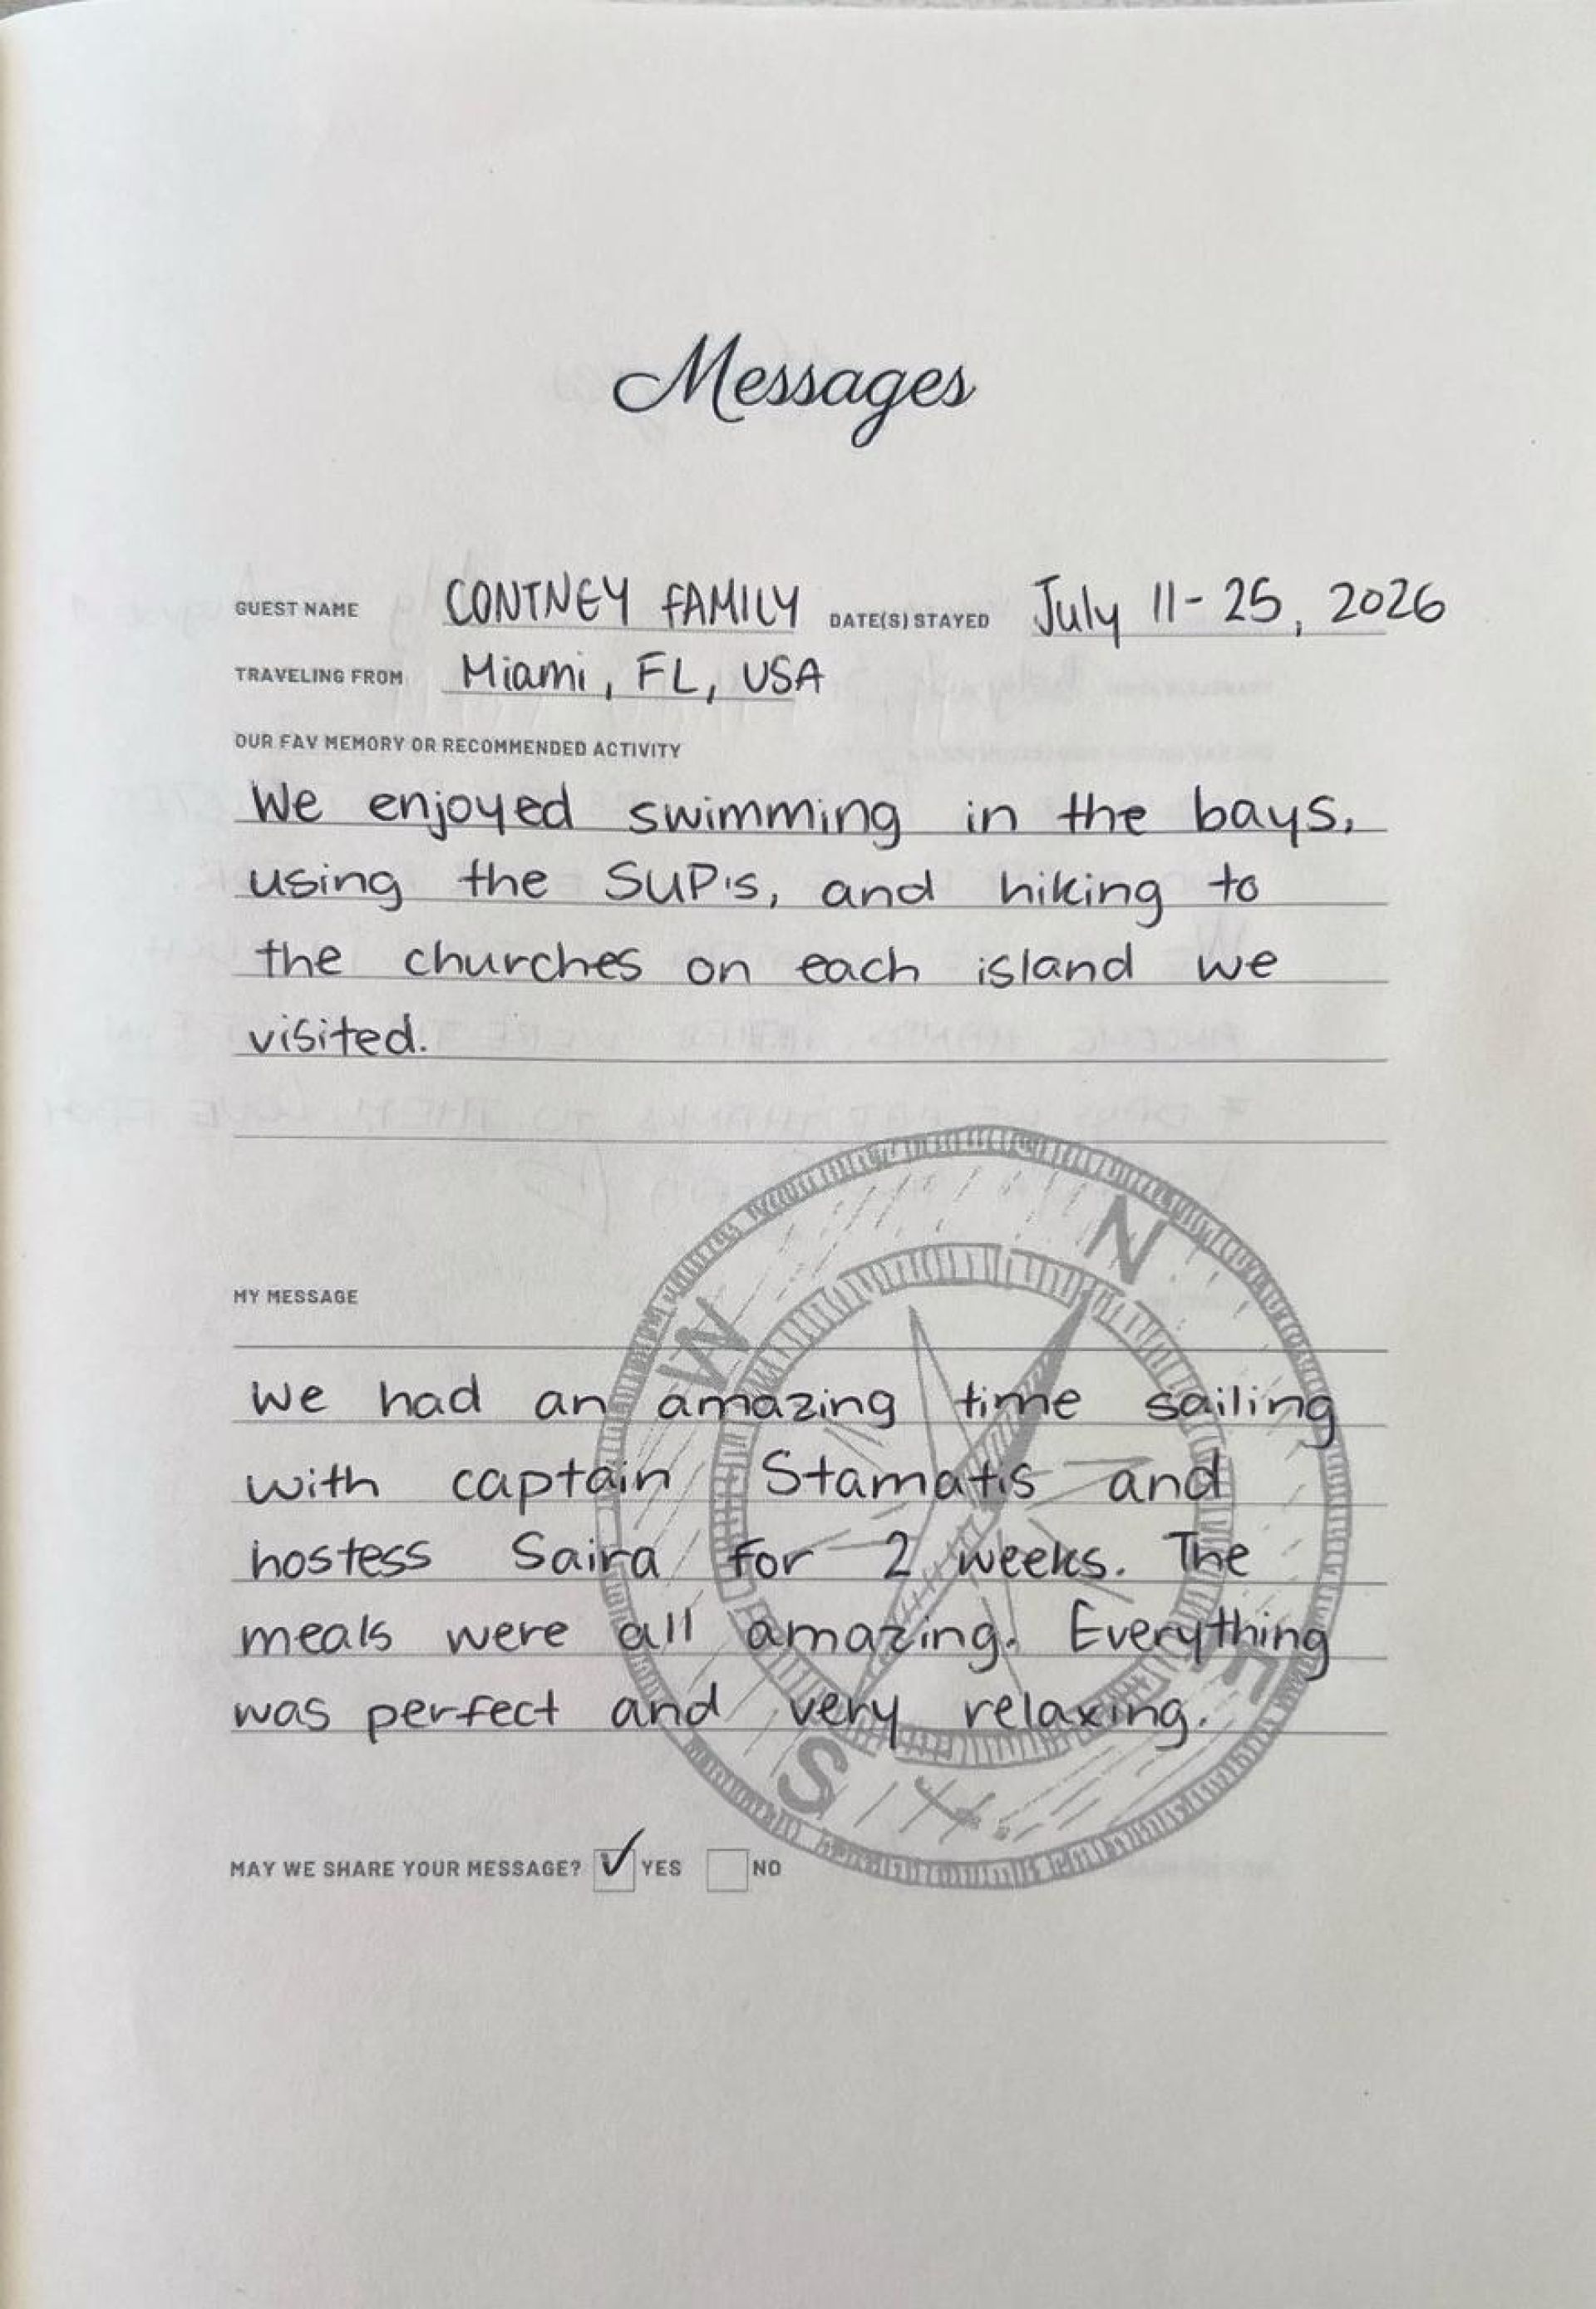 Messages
GUEST NAME CONTNEY FAMILY DATE(S) STAYED July 11-25, 2026
TRAVELING FROM Miami, FL, USA
OUR FAV MEMORY OR RECOMMENDED ACTIVITY
We enjoyed swimming in the bays,
using the SUP's, and hiking to
the churches on each island we
visited.
N
W
MY MESSAGE
We had an amazing time sailing
with captain Stamatis and
hostess Saira for 2 weeks. The
meals were all amazing. Everything
E
was perfect and very relaxing.
S
MAY WE SHARE YOUR MESSAGE? ✓ YES NO